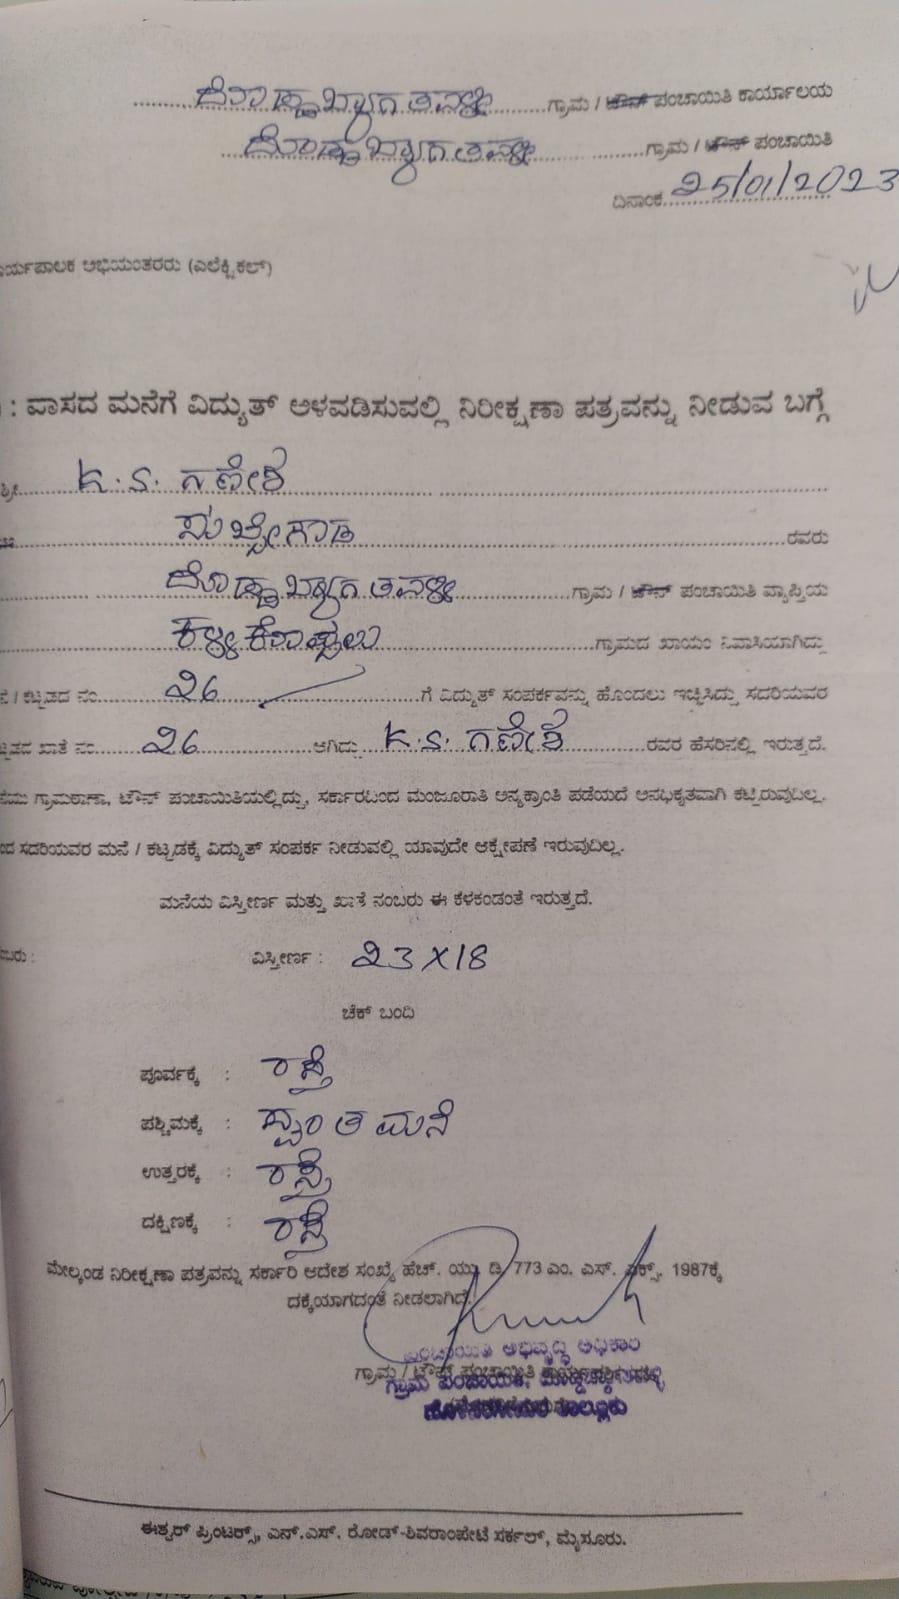 ದೊಡ್ಡಬ್ಯಾಗತವಳ್ಳಿ ಗ್ರಾಮ / ಟೌನ್ ಪಂಚಾಯಿತಿ ಕಾರ್ಯಾಲಯ
ದೊಡ್ಡಬ್ಯಾಗತವಳ್ಳಿ ಗ್ರಾಮ / ಟೌನ್ ಪಂಚಾಯಿತಿ
ದಿನಾಂಕ 25/01/2023
ರ್ಯಪಾಲಕ ಅಭಿಯಂತರರು (ಎಲೆಕ್ಟ್ರಿಕಲ್)
: ವಾಸದ ಮನೆಗೆ ವಿದ್ಯುತ್ ಅಳವಡಿಸುವಲ್ಲಿ ನಿರೀಕ್ಷಣಾ ಪತ್ರವನ್ನು ನೀಡುವ ಬಗ್ಗೆ
ಶ್ರೀ K.S. ಗಣೇಶ
ಸುಬ್ಬೇಗೌಡ ರವರು
ದೊಡ್ಡಬ್ಯಾಗತವಳ್ಳಿ ಗ್ರಾಮ / ಟೌನ್ ಪಂಚಾಯಿತಿ ವ್ಯಾಪ್ತಿಯ
ಕಳ್ಳಕೊಪ್ಪಲು ಗ್ರಾಮದ ಖಾಯಂ ನಿವಾಸಿಯಾಗಿದ್ದು
/ ಕಟ್ಟಡದ ನಂ. 26 ಗೆ ವಿದ್ಯುತ್ ಸಂಪರ್ಕವನ್ನು ಹೊಂದಲು ಇಚ್ಛಿಸಿದ್ದು ಸದರಿಯವರ
ಖಾತೆ ನಂ. 26 ಆಗಿದ್ದು K.S. ಗಣೇಶ ರವರ ಹೆಸರಿನಲ್ಲಿ ಇರುತ್ತದೆ.
ಗ್ರಾಮಠಾಣಾ, ಟೌನ್ ಪಂಚಾಯಿತಿಯಲ್ಲಿದ್ದು, ಸರ್ಕಾರದಿಂದ ಮಂಜೂರಾತಿ ಅನ್ಯಕ್ರಾಂತಿ ಪಡೆಯದೆ ಅನಧಿಕೃತವಾಗಿ ಕಟ್ಟಿರುವುದಿಲ್ಲ.
ಸದರಿಯವರ ಮನೆ / ಕಟ್ಟಡಕ್ಕೆ ವಿದ್ಯುತ್ ಸಂಪರ್ಕ ನೀಡುವಲ್ಲಿ ಯಾವುದೇ ಆಕ್ಷೇಪಣೆ ಇರುವುದಿಲ್ಲ.
ಮನೆಯ ವಿಸ್ತೀರ್ಣ ಮತ್ತು ಖಾತೆ ನಂಬರು ಈ ಕೆಳಕಂಡಂತೆ ಇರುತ್ತದೆ.
ಬರು : ವಿಸ್ತೀರ್ಣ : 23 X 18
ಚೆಕ್ ಬಂದಿ
ಪೂರ್ವಕ್ಕೆ : ರಸ್ತೆ
ಪಶ್ಚಿಮಕ್ಕೆ : ಸ್ವಂತ ಮನೆ
ಉತ್ತರಕ್ಕೆ : ರಸ್ತೆ
ದಕ್ಷಿಣಕ್ಕೆ : ರಸ್ತೆ
ಮೇಲ್ಕಂಡ ನಿರೀಕ್ಷಣಾ ಪತ್ರವನ್ನು ಸರ್ಕಾರಿ ಆದೇಶ ಸಂಖ್ಯೆ ಹೆಚ್. ಯು. ಡಿ. 773 ಎಂ. ಎಸ್. ಎಕ್ಸ್. 1987ಕ್ಕೆ
ದಕ್ಕೆಯಾಗದಂತೆ ನೀಡಲಾಗಿದೆ.
ಪಂಚಾಯಿತಿ ಅಭಿವೃದ್ಧಿ ಅಧಿಕಾರಿ
ಗ್ರಾಮ / ಟೌನ್ ಪಂಚಾಯಿತಿ
ಗ್ರಾಮ ಪಂಚಾಯಿತಿ,
ತಾಲ್ಲೂಕು
ಈಶ್ವರ್ ಪ್ರಿಂಟರ್ಸ್, ಎನ್.ಎಸ್. ರೋಡ್-ಶಿವರಾಂಪೇಟೆ ಸರ್ಕಲ್, ಮೈಸೂರು.